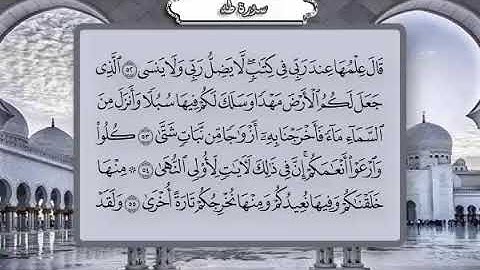 سورة طه
قَالَ عِلْمُهَا عِندَ رَبِّى فِى كِتَٰبٍ ۖ لَّا يَضِلُّ رَبِّى وَلَا يَنسَى ٥٢ ٱلَّذِى
جَعَلَ لَكُمُ ٱلْأَرْضَ مَهْدًا وَسَلَكَ لَكُمْ فِيهَا سُبُلًا وَأَنزَلَ مِنَ
ٱلسَّمَآءِ مَآءً فَأَخْرَجْنَا بِهِۦٓ أَزْوَٰجًا مِّن نَّبَاتٍ شَتَّىٰ ٥٣ كُلُوا۟
وَٱرْعَوْا۟ أَنْعَٰمَكُمْ ۗ إِنَّ فِى ذَٰلِكَ لَءَايَٰتٍ لِّأُو۟لِى ٱلنُّهَىٰ ٥٤ ۞ مِنْهَا
خَلَقْنَٰكُمْ وَفِيهَا نُعِيدُكُمْ وَمِنْهَا نُخْرِجُكُمْ تَارَةً أُخْرَىٰ ٥٥ وَلَقَدْ